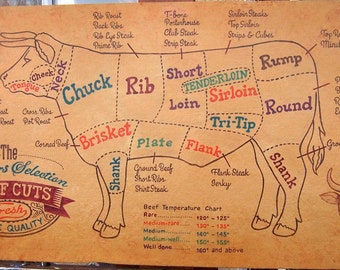 Rib Roast
Back Ribs
Rib Eye Steak
Prime Rib
T-bone
Porterhouse
Club Steak
Strip Steak
Sirloin Steaks
Top Sirloin
Strips & Cubes
Cheek
Tongue
Neck
Chuck
Rib
Short
Loin
TENDERLOIN
Sirloin
Tri-Tip
Rump
Round
Cross Ribs
Pot Roast
Corned Beef
Brisket
Plate
Flank
Shank
Shank
Ground Beef
Short Ribs
Skirt Steak
Flank Steak
Jerky
The
Selection
CUTS
Fresh
QUALITY
Beef Temperature Chart
Rare 120° - 125°
Medium-rare 130° - 135°
Medium 140° - 145°
Medium-well 150° - 155°
Well done 160° and above